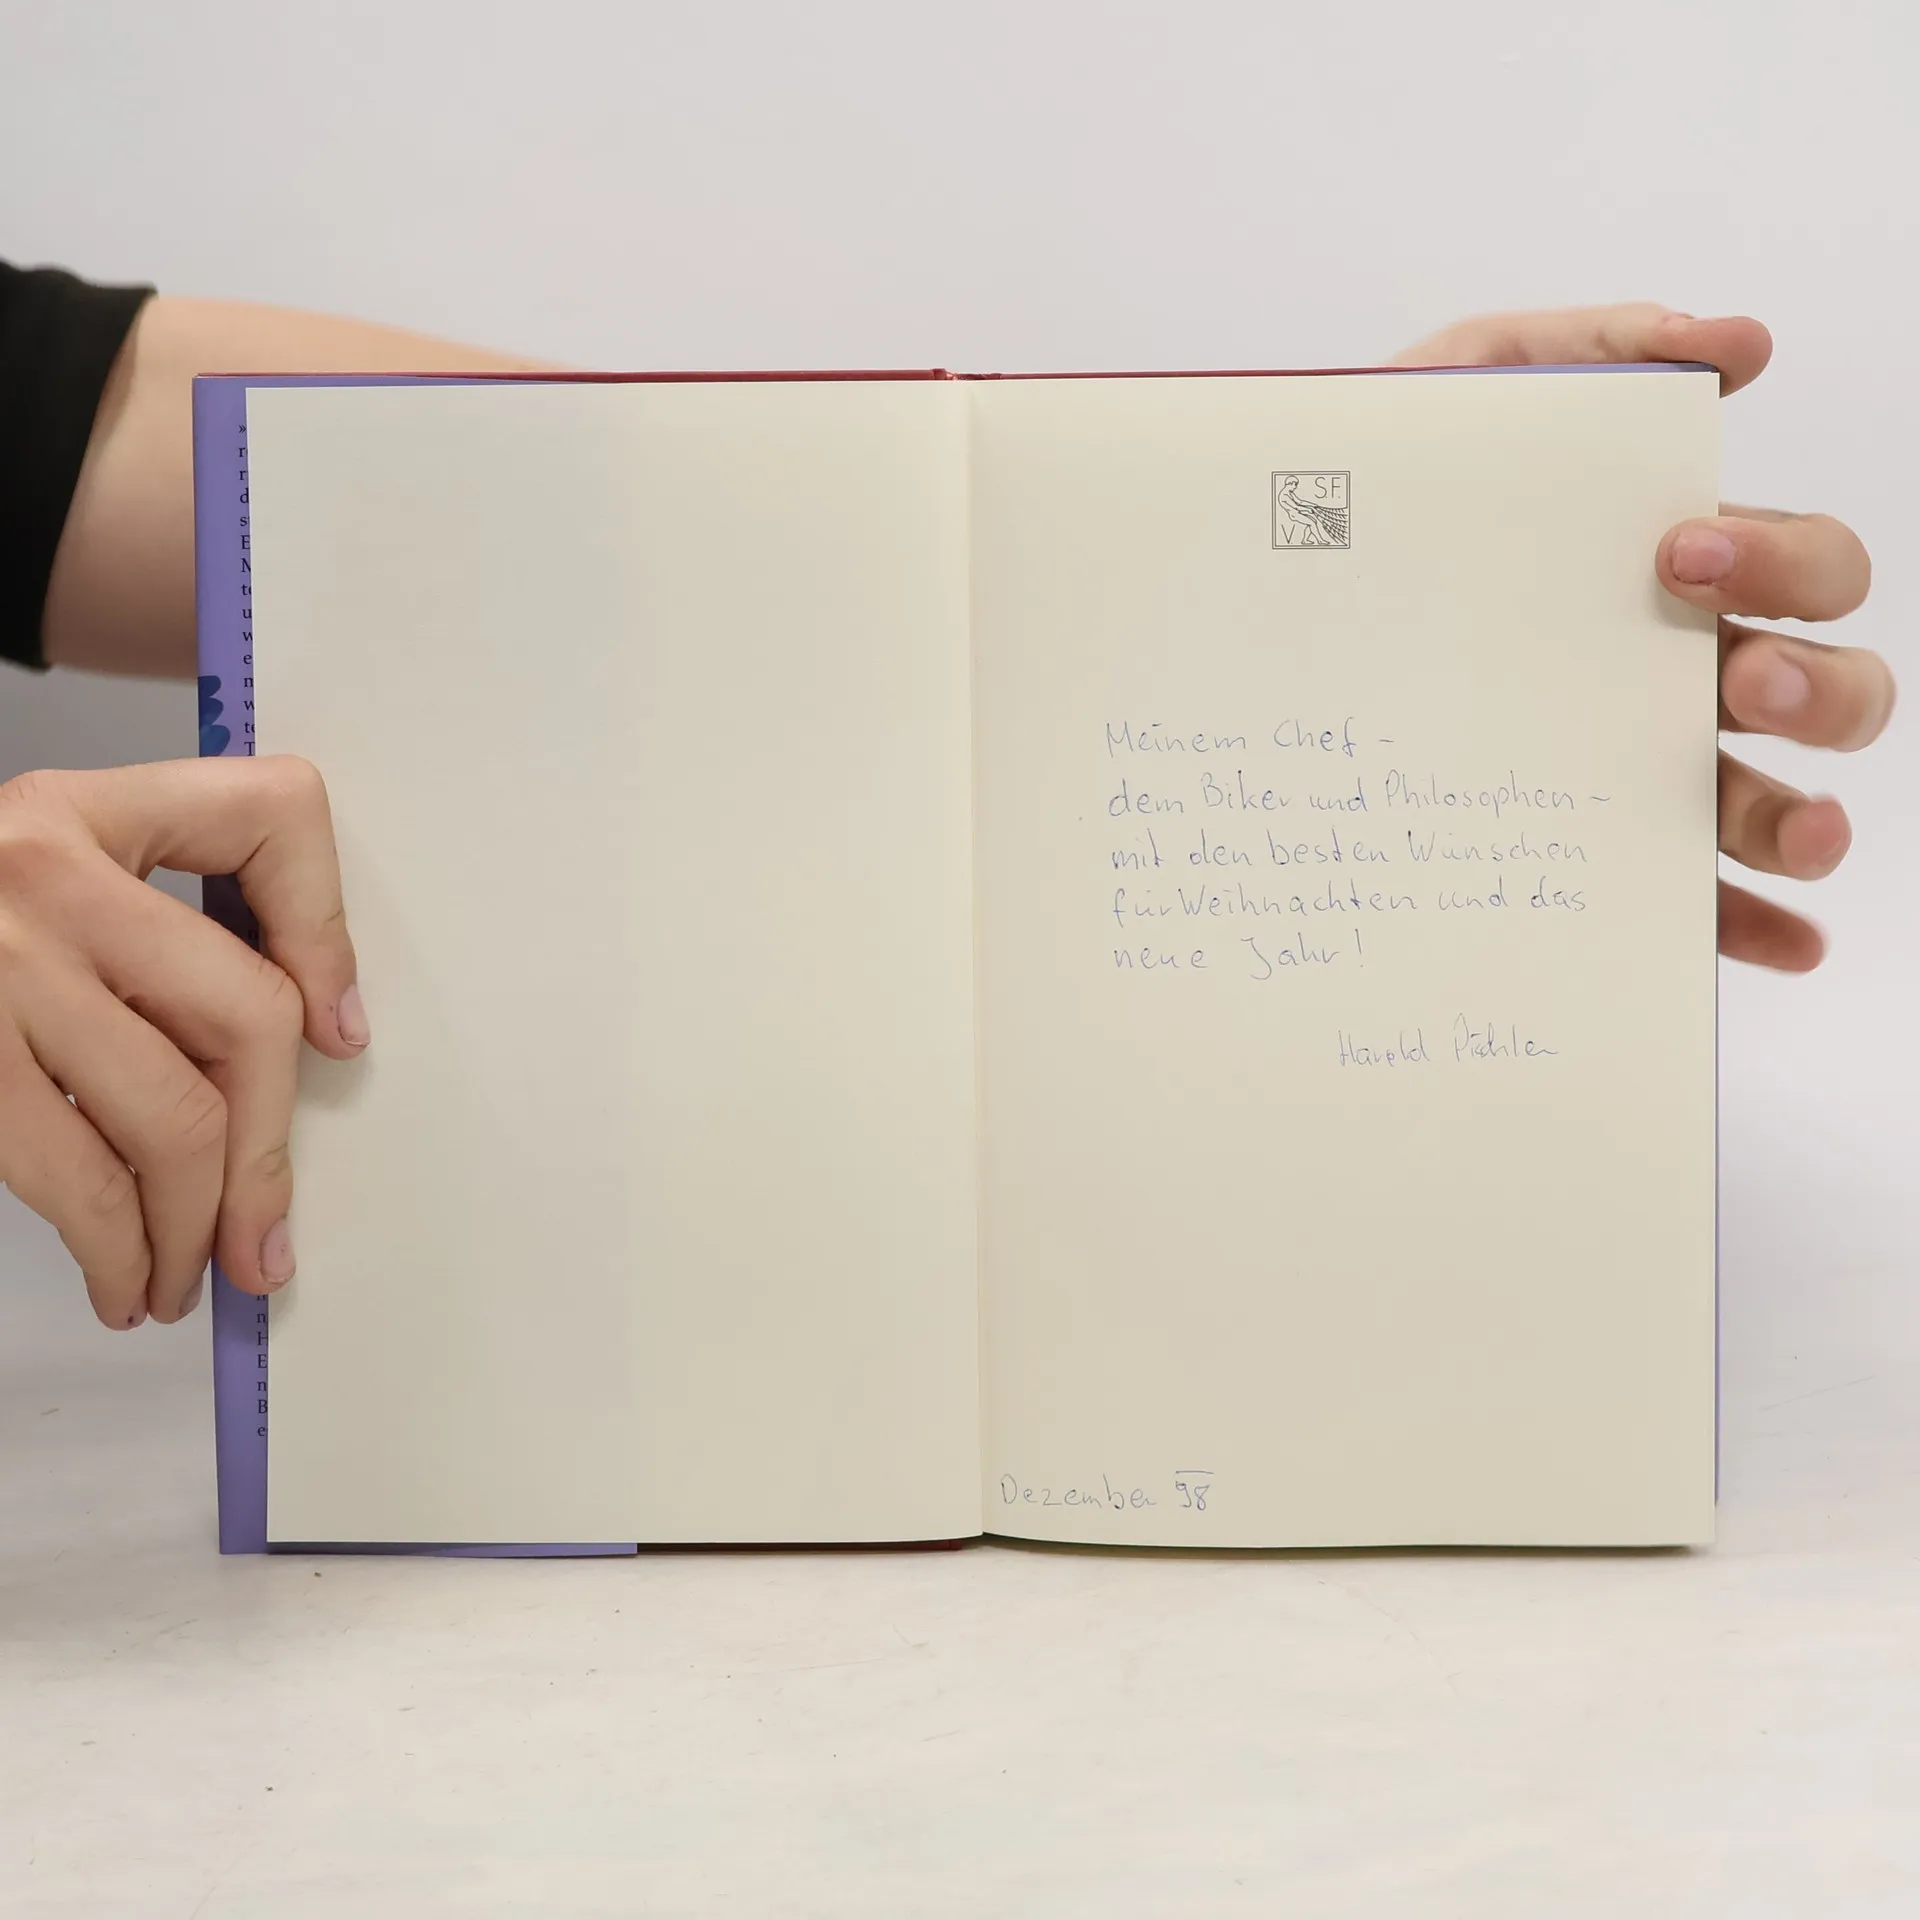 »
S.F.
V.
Meinem Chef –
dem Biker und Philosophen –
mit den besten Wünschen
für Weihnachten und das
neue Jahr!
Harald
Dezember 98